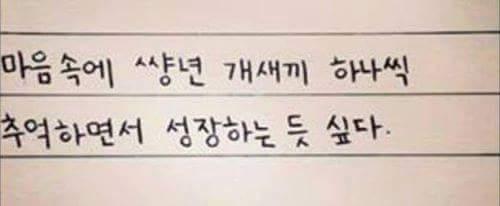 마음속에 쌍년 개새끼 하나씩
추억하면서 성장하는 듯 싶다.